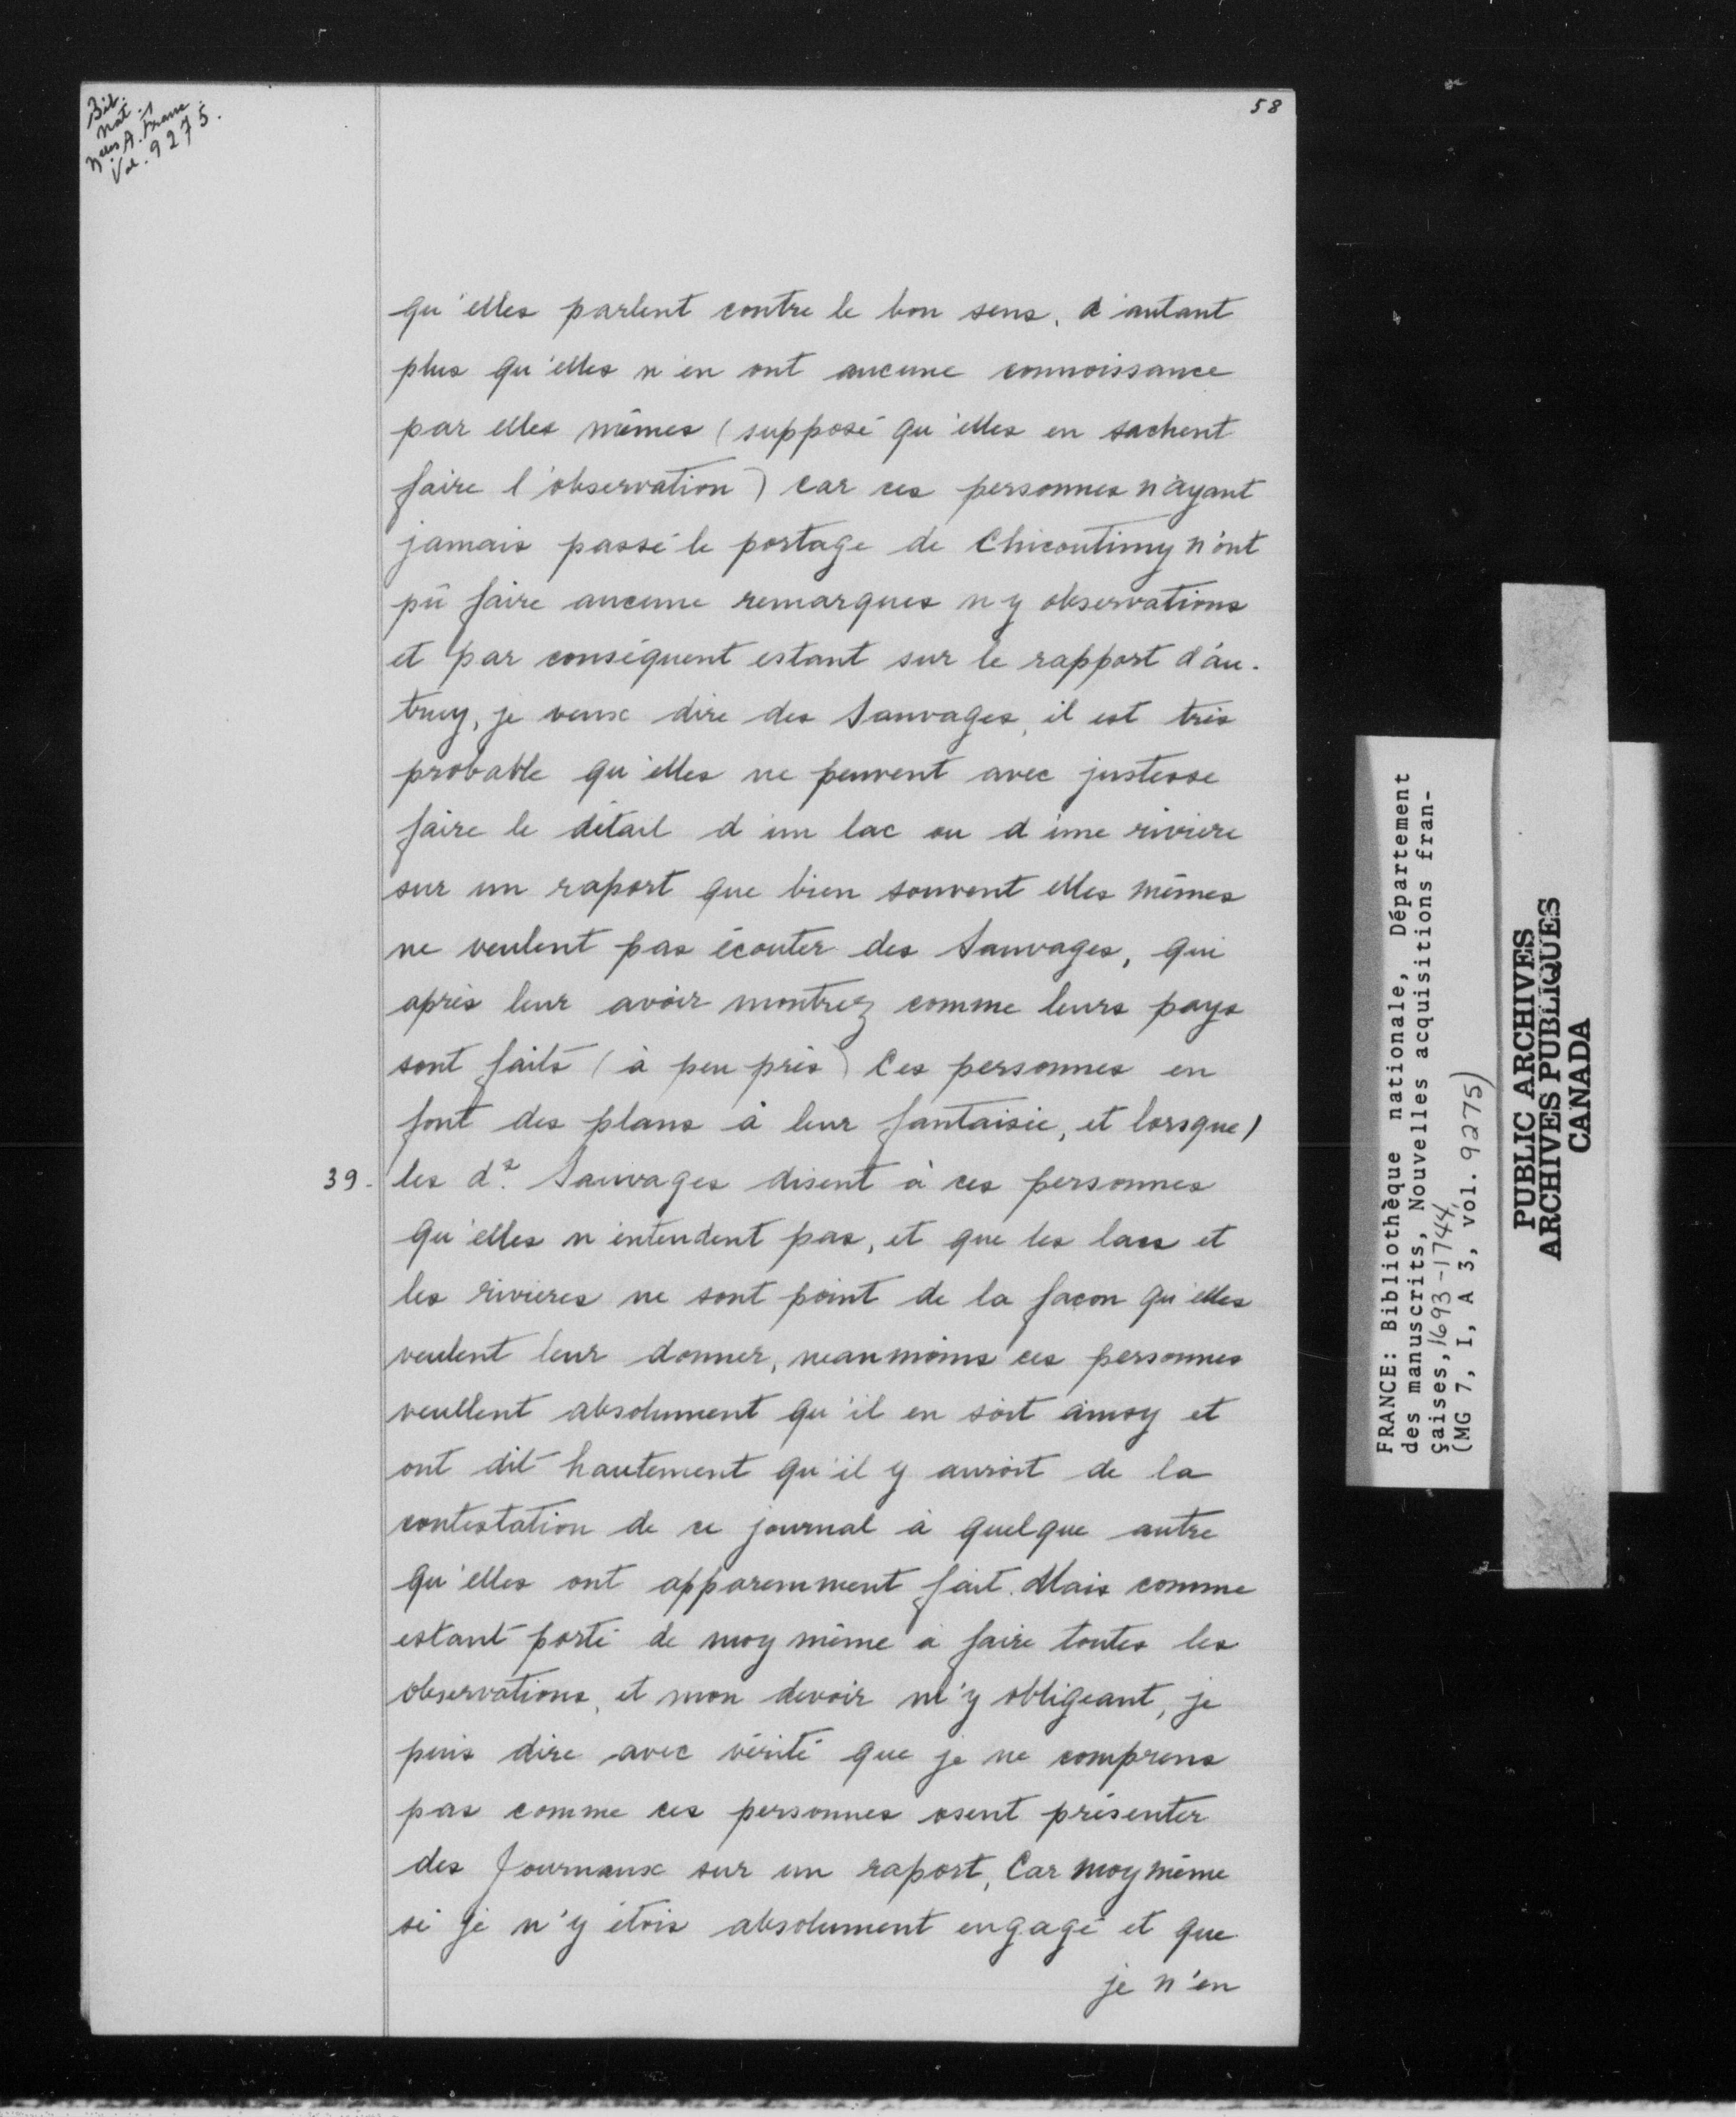 Bib.
Nat.
Nelles A. Franc.
Vol. 9275.
58
qu'elles parlent contre le bon sens, d'autant
plus qu'elles n'en ont aucune connoissance
par elles mêmes (supposé qu'elles en sachent
faire l'observation) car ces personnes n'ayant
jamais passé le portage de Chicoutimy n'ont
pû faire aucune remarques n'y observations
et par conséquent estant sur le rapport d'au-
truy, je veux dire des Sauvages, il est très
probable qu'elles ne peuvent avec justesse
faire le détail d'un lac ou d'une riviere
sur un raport que bien souvent elles mêmes
ne veulent pas écouter des Sauvages, qui
après leur avoir montrez comme leurs pays
sont faits (à peu près) Ces personnes en
font des plans à leur fantaisie, et lorsque/
39- les ds. Sauvages disent à ces personnes
qu'elles n'entendent pas, et que les lacs et
les rivieres ne sont point de la façon qu'elles
veulent leur donner, neanmoins ces personnes
veullent absolument qu'il en soit ainsy et
ont dit hautement qu'il y auroit de la
contestation de ce journal à quelque autre
qu'elles ont apparemment fait. Mais comme
estant porté de moy même à faire toutes les
observations, et mon devoir m'y obligeant, je
puis dire avec vérité que je ne comprens
pas comme ces personnes osent présenter
des Journaux sur un raport, Car moy même
si je n'y étois absolument engagé et que
je n'en
FRANCE: Bibliothèque nationale, Département
des manuscrits, Nouvelles acquisitions fran-
çaises, 1693-1744,
(MG 7, I, A 3, vol. 9275)
PUBLIC ARCHIVES
ARCHIVES PUBLIQUES
CANADA